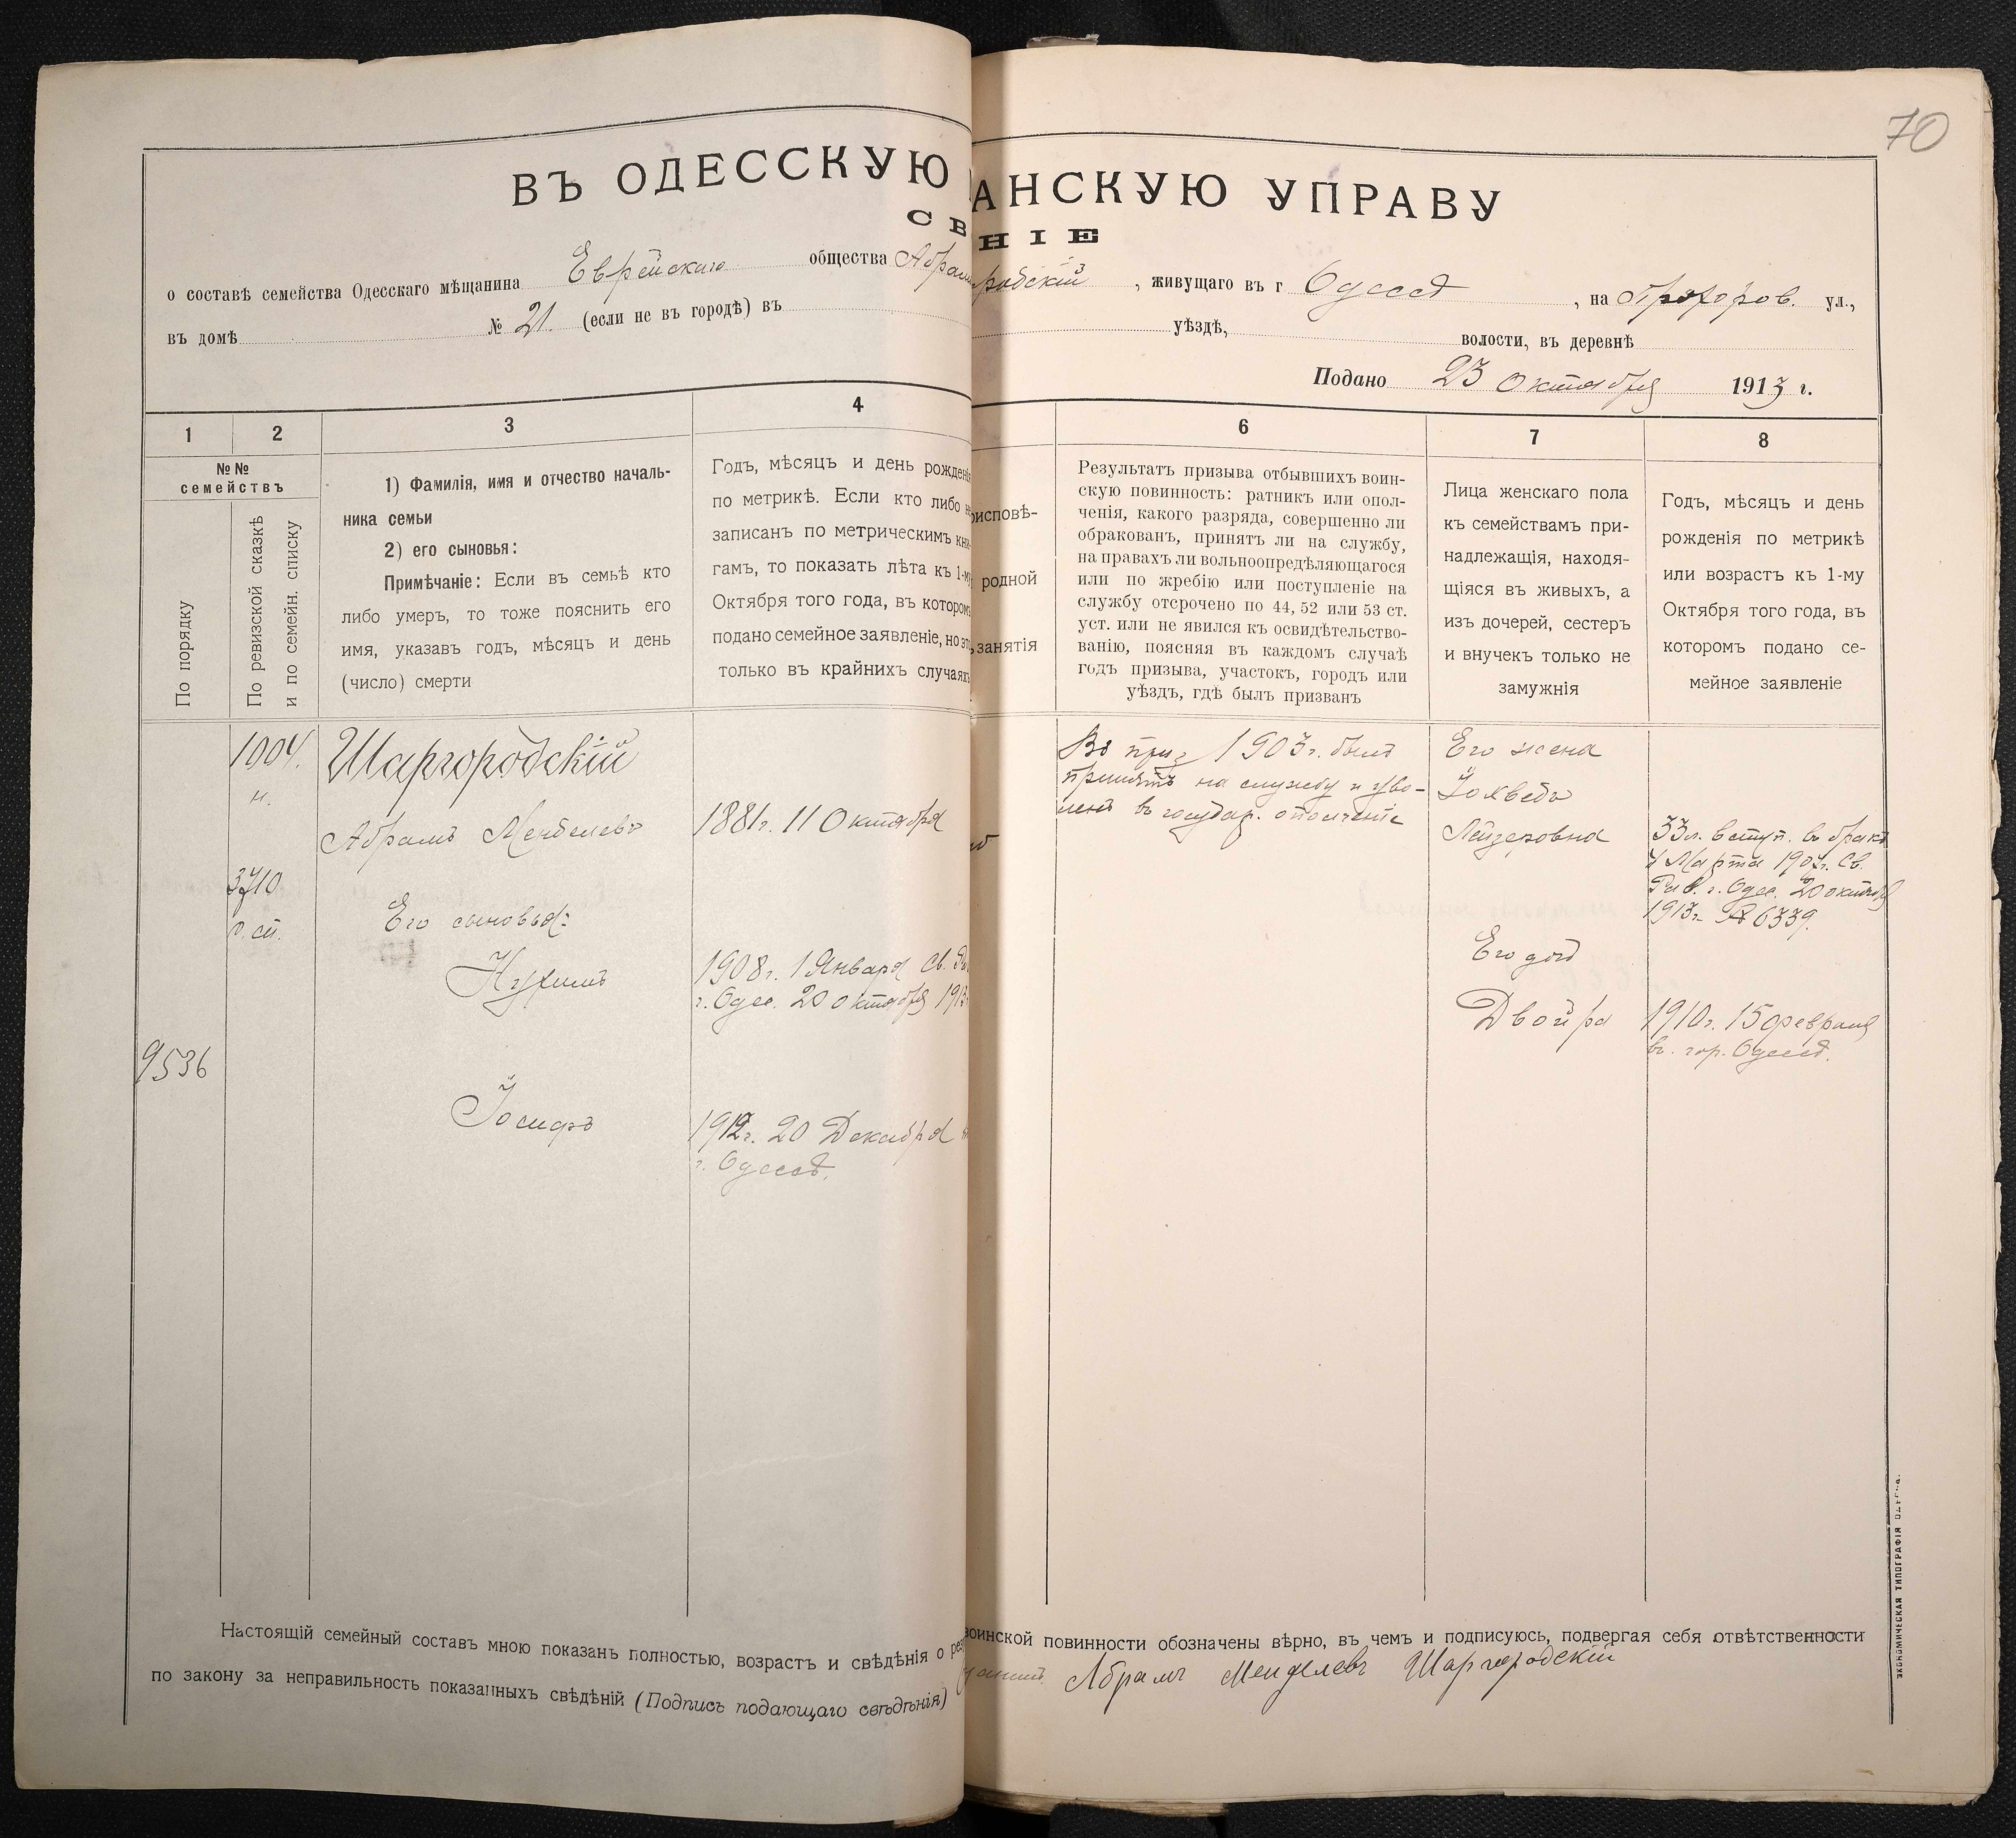 70
ВЪ ОДЕССКУЮ АНСКУЮ УПРАВУ
СВ НІЕ
о составѣ семейства Одесскаго мѣщанина Еврейскаго общества Абрам родскій, живущаго въ г Одессѣ, на Прохоров. ул.,
въ домѣ № 21. (если не въ городѣ) въ уѣздѣ, волости, въ деревнѣ
Подано 23 Октября 1913 г.
1
2
3
4
6
7
8
№№
семействъ
По порядку
По ревизской сказкѣ
и по семейн. списку
1) Фамилія, имя и отчество началь-
ника семьи
2) его сыновья:
Примѣчаніе: Если въ семьѣ кто
либо умеръ, то тоже пояснить его
имя, указавъ годъ, мѣсяцъ и день
(число) смерти
Годъ, мѣсяцъ и день рожденія
по метрикѣ. Если кто либо не
записанъ по метрическимъ кни-
гамъ, то показать лѣта къ 1-му
Октября того года, въ которомъ
подано семейное заявленіе, но это
только въ крайнихъ случаяхъ
рисповѣ-
родной
занятія
Результатъ призыва отбывшихъ воин-
скую повинность: ратникъ или опол-
ченія, какого разряда, совершенно ли
обракованъ, принятъ ли на службу,
на правахъ ли вольноопредѣляющагося
или по жребію или поступленіе на
службу отсрочено по 44, 52 или 53 ст.
уст. или не явился къ освидѣтельство-
ванію, поясняя въ каждомъ случаѣ
годъ призыва, участокъ, городъ или
уѣздъ, гдѣ былъ призванъ
Лица женскаго пола
къ семействамъ при-
надлежащія, находя-
щіяся въ живыхъ, а
изъ дочерей, сестеръ
и внучекъ только не
замужнія
Годъ, мѣсяцъ и день
рожденія по метрикѣ
или возрастъ къ 1-му
Октября того года, въ
которомъ подано се-
мейное заявленіе
1004.
н.
3710
р. сп.
9536
Шаргородскій
Абрамъ Менделевъ
Его сыновья:
Нухимъ
Іосифъ
1881г. 11 Октября
1908г. 1 Января Св. Ра
г. Одес. 20 октября 1913
1912г. 20 Декабря
г. Одессѣ.
Въ приз 1903г. былъ
принятъ на службу и уво-
ленъ въ государ. ополченіе
Его жена
Іохведъ
Лейзеровна
Его доч
Двойра
33л. вступ. въ бракъ
4 Марта 1907г. Св.
Рав. г. Одес. 20 октябр
1913г. № 6339.
1910г. 15 февраля
въ гор. Одессѣ.
Настоящій семейный составъ мною показанъ полностью, возрастъ и свѣдѣнія о рез воинской повинности обозначены вѣрно, въ чемъ и подписуюсь, подвергая себя отвѣтственности
по закону за неправильность показанныхъ свѣдѣній (Подпись подающаго свѣдѣнія) Абрамъ Менделевъ Шаргородскій
ЭКОНОМИЧЕСКАЯ ТИПОГРАФІЯ ОДЕССА.